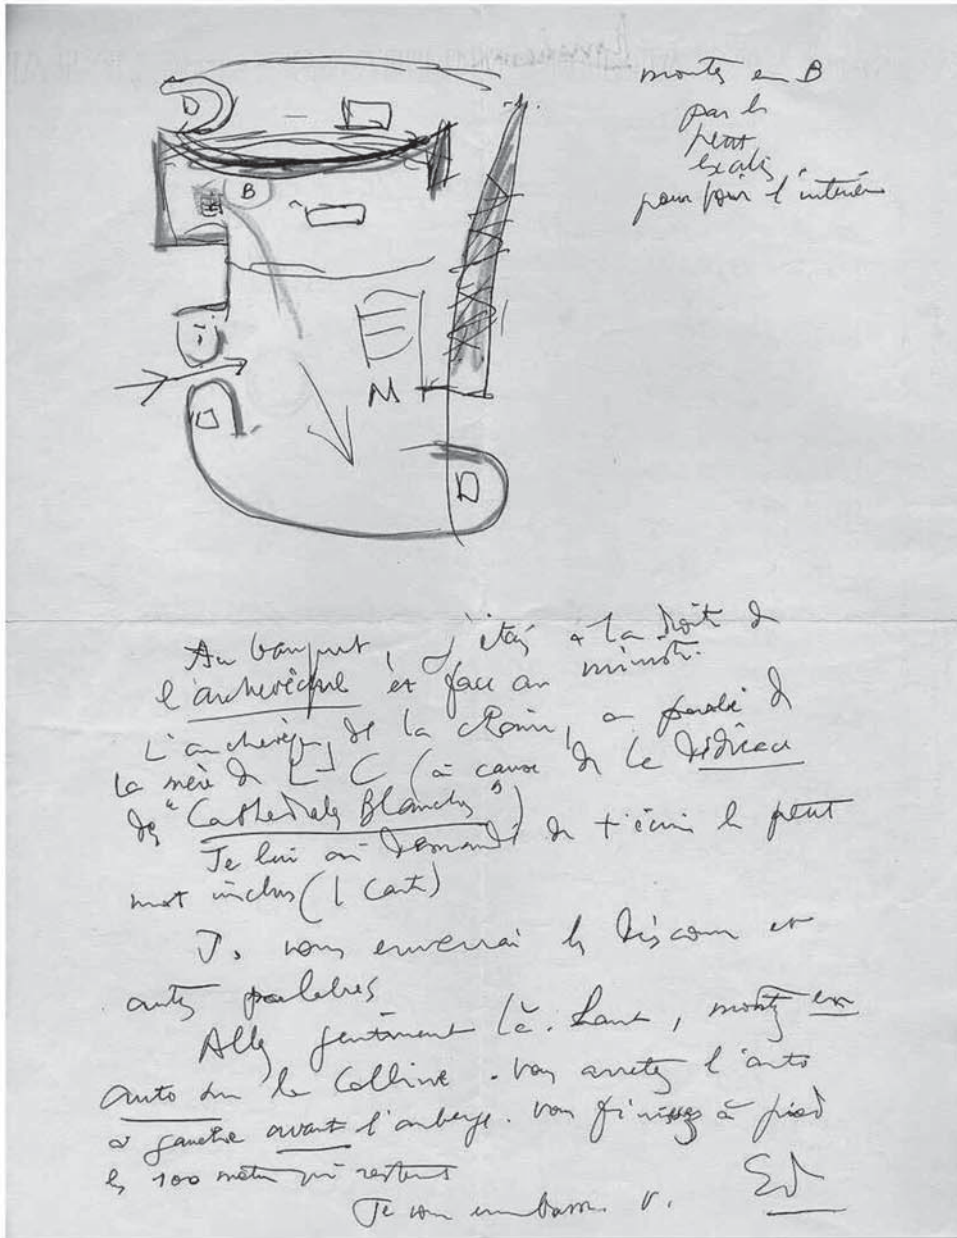 montez en B
par le
petit
escalier
pour voir l'intérieur
D
B
M
D
D
Au banquet, j'étais à la droite de
l'archevêque et face au ministre.
L'archevêque, de la chaire, a parlé de
la mère de L-C (à cause de la dédicace
des "Cathédrales Blanches")
Je lui ai demandé de t'écrire le petit
mot inclus (1 carte)
Je vous enverrai les discours et
autres palabres
Allez gentiment là-haut, montez en
auto sur la Colline. Vous arrêtez l'auto
à gauche avant l'auberge. Vous finissez à pied
les 100 mètres qui restent
Je vous embrasse. V. Ed